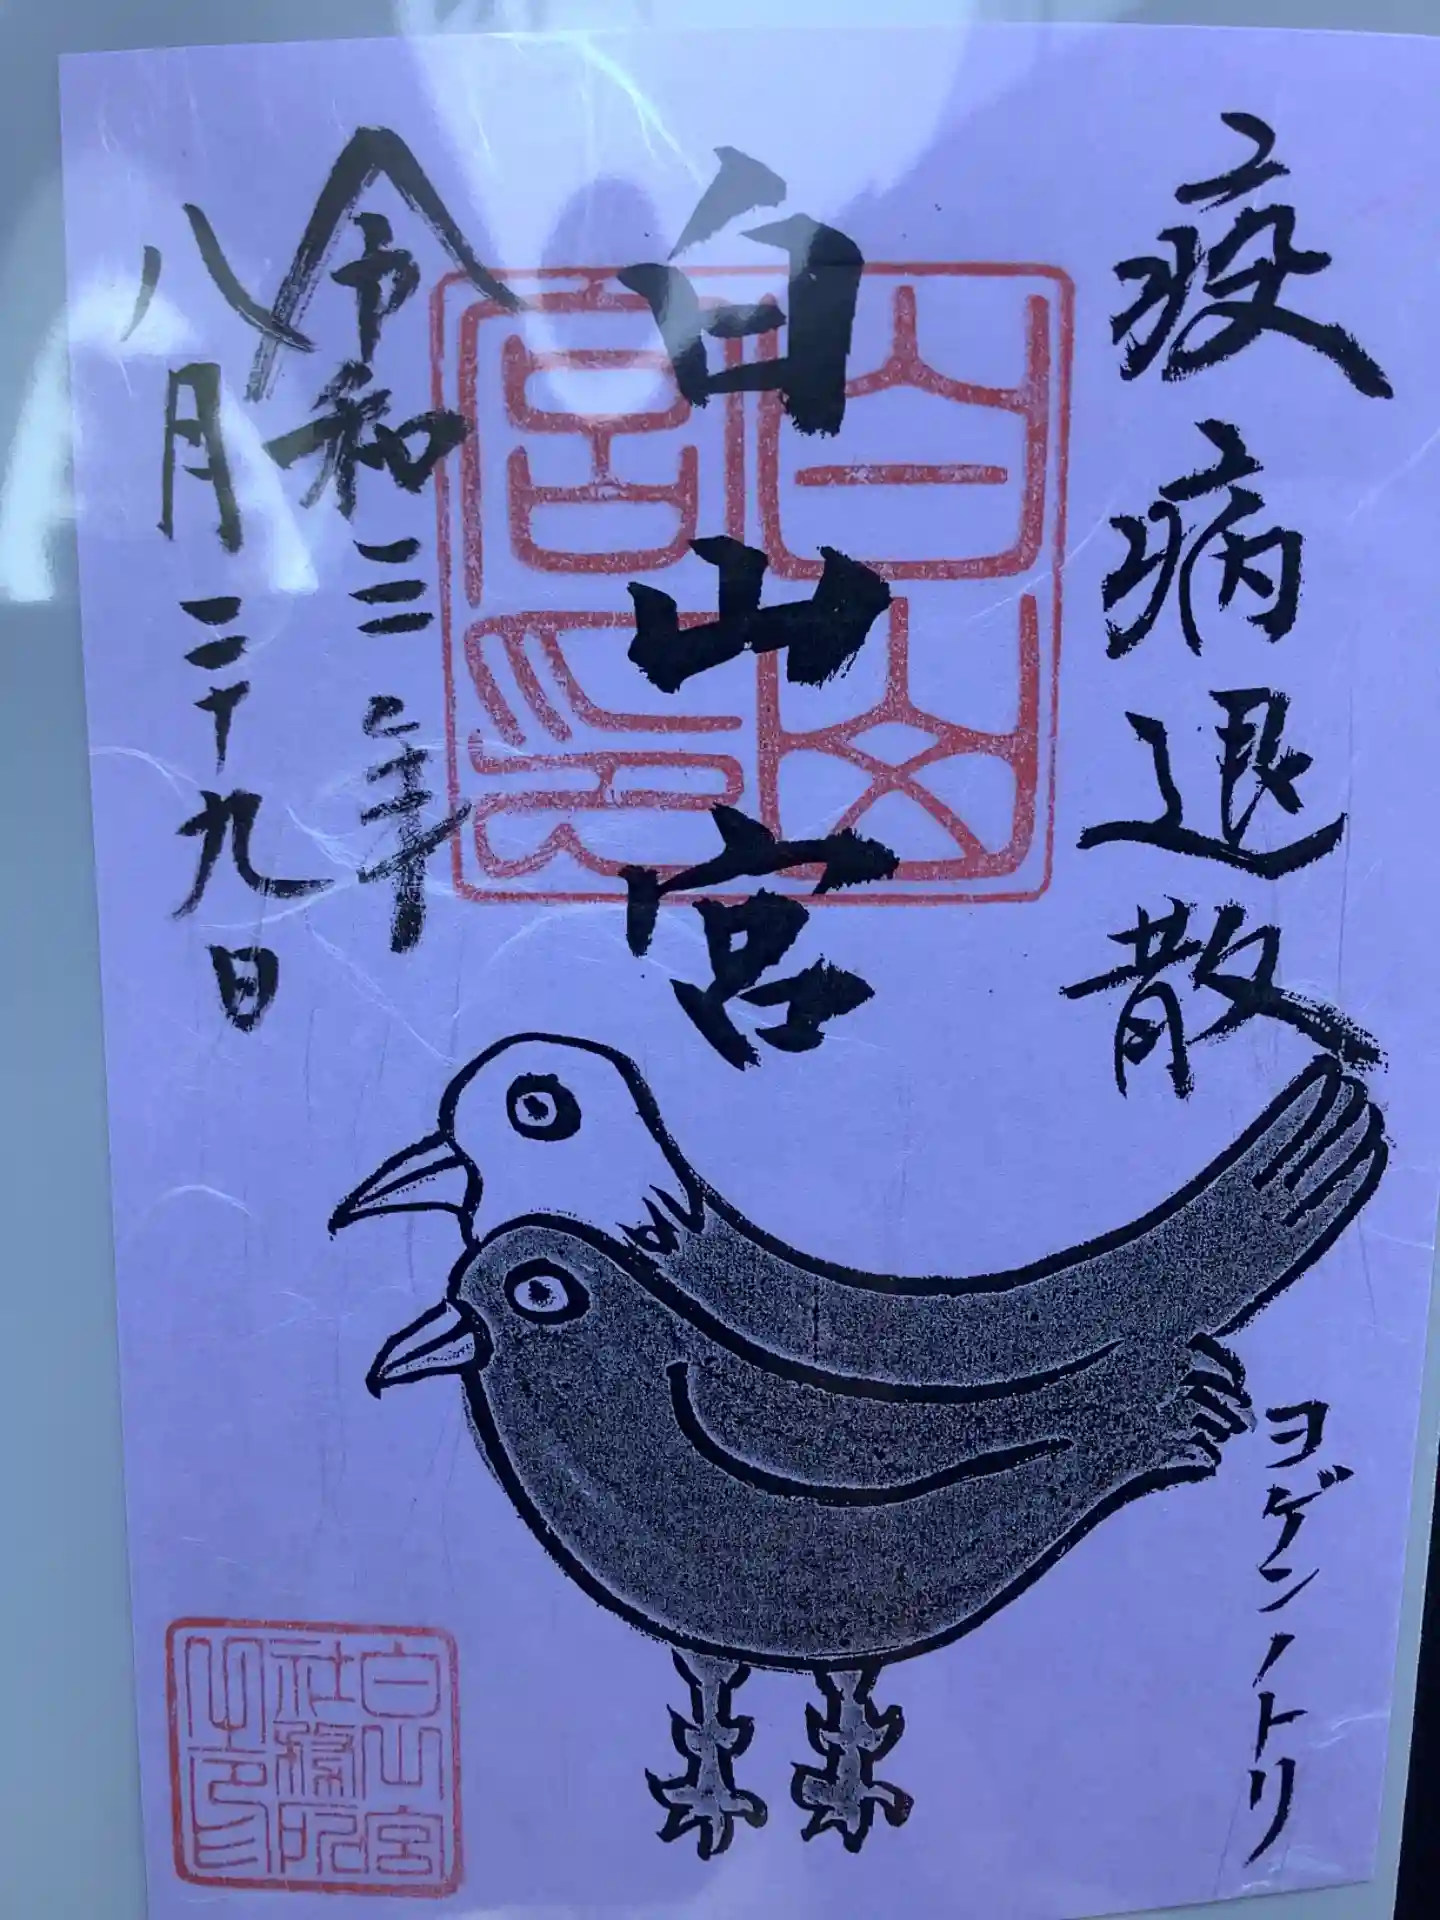 疫病退散
ヨゲンノトリ
白山宮
令和三年
八月二十九日
白山宮印
白山宮
社務所
之印